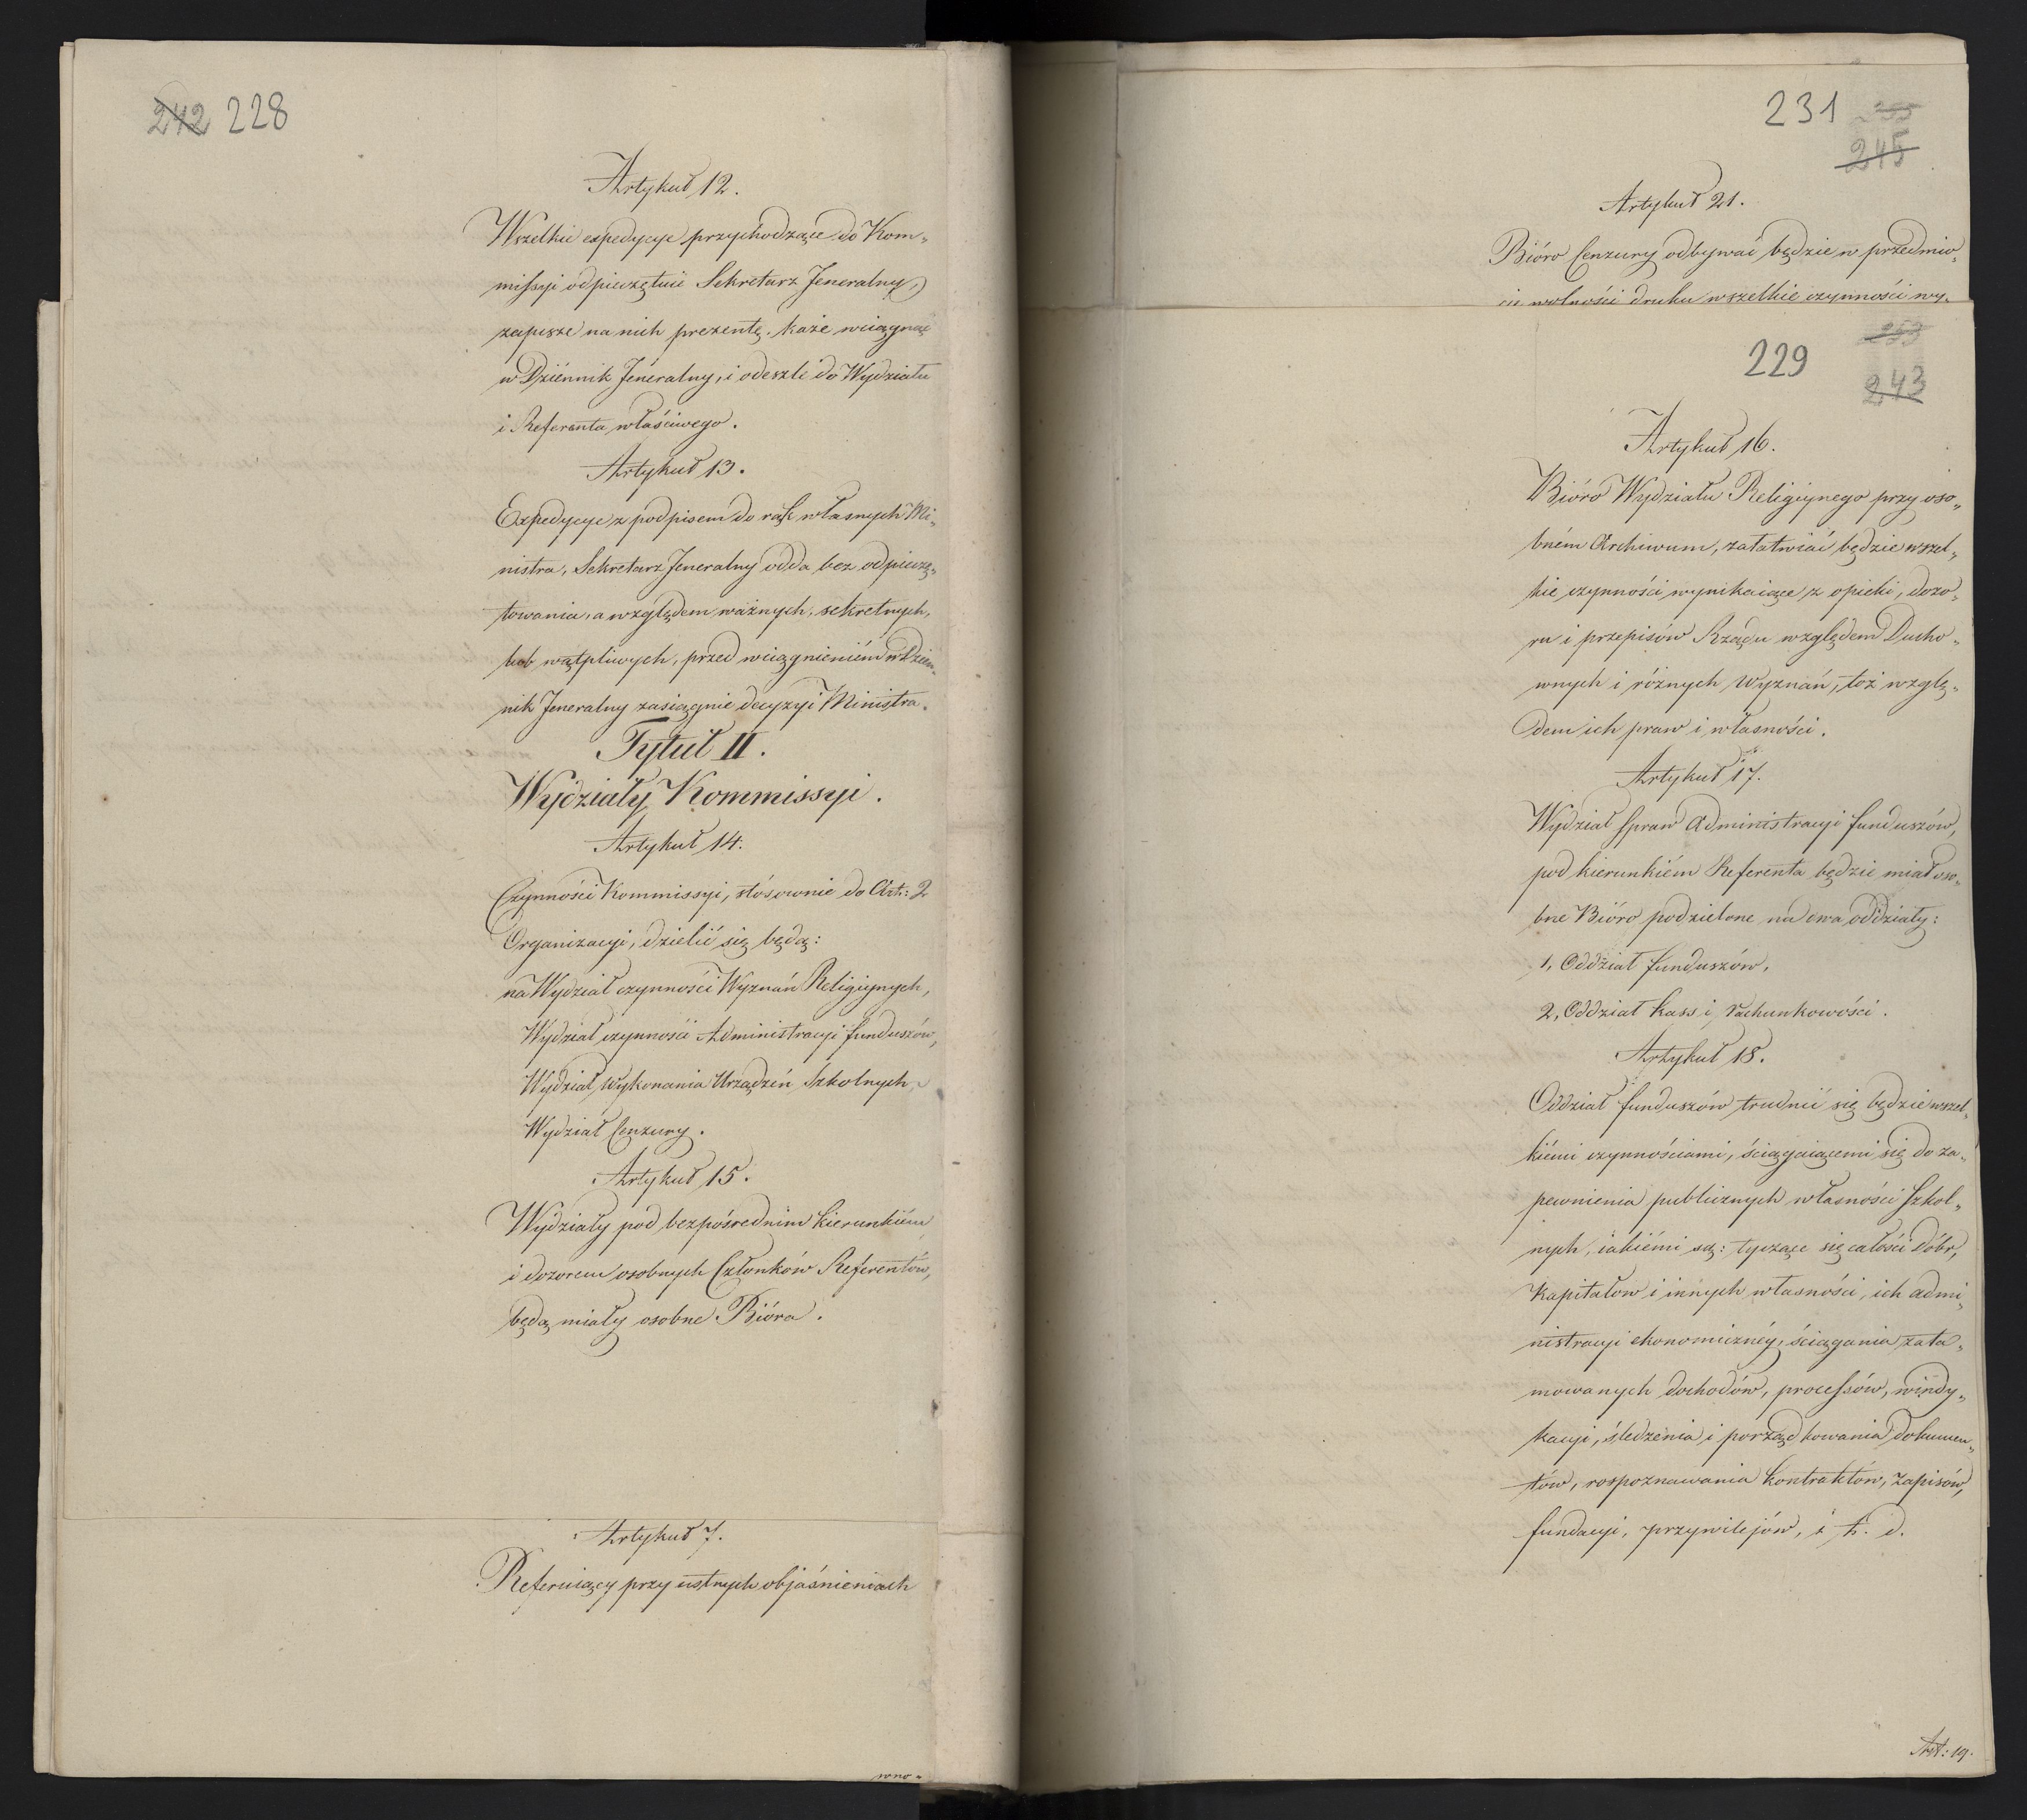 242 228
Artykuł 12.
Wszelkie expedycye przychodzące do Kom„
missyi odpieczętuie Sekretarz Jeneralny,
zapisze na nich prezentę, każe wciągnąć
w Dziennik Jeneralny, i odeszle do Wydziału
i Referenta właściwego.
Artykuł 13.
Expedycye z podpisem do rąk własnych Mi„
nistra, Sekretarz Jeneralny odda bez odpieczę„
towania, a względem ważnych, sekretnych,
lub wątpliwych, przed wciągnieniém w Dzien„
nik Jeneralny zasięgnie decyzyi Ministra.
Tytuł II.
Wydziały Kommissyi.
Artykuł 14.
Czynności Kommissyi, stósownie do Art: 2
Organizacyi, dzielić się będą:
na Wydział czynności Wyznań Religiynych,
Wydział czynności Administracyi funduszów,
Wydział Wykonania Urządzeń Szkolnych,
Wydział Cenzury.
Artykuł 15.
Wydziały pod bezpośrednim kierunkiém
i dozorem osobnych Członków Referentów,
będą miały osobne Bióra.
Artykuł 7.
Referuiący przy ustnych objaśnieniach
wno„
231 255
245
Artykuł 21.
Bióro Cenzury odbywać będzie w przedmio„
cie wolności druku wszelkie czynności wy„
253
229
243
Artykuł 16.
Bióro Wydziału Religiynego przy oso„
bném Archiwum, załatwiać będzie wszel„
kie czynności wynikaiące z opieki, dozo„
ru i przepisów Rządu względem Ducho„
wnych i różnych Wyznań, toż wzglę„
dem ich praw i własności.
Artykuł 17.
Wydział spraw Administracyi funduszów,
pod kierunkiém Referenta będzie miał oso„
bne Bióro podzielone na dwa oddziały:
1, Oddział funduszów,
2, Oddział kass i rachunkowości.
Artykuł 18.
Oddział funduszów trudnić się będzie wszel„
kiémi czynnościami, ściągaiącemi się do za„
pewnienia publicznych własności Szkol„
nych, iakiémi są: tyczące się całości dóbr,
kapitałow i innych własności, ich admi„
nistracyi ekonomicznéy, ściągania zata„
mowanych dochodów, processów, windy„
kacyi, śledzenia i porządkowania dokumen„
tów, rospoznawania kontraktów, zapisów,
fundacyi, przywilejów, i t. d.
Art: 19.